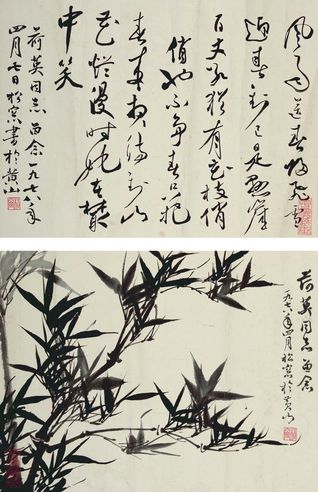 风雨送春归飞雪
迎春到已是悬崖
百丈冰犹有花枝俏
俏也不争春只把
春来报待到山
花烂漫时她在丛
中笑
荷英同志留念一九七八年
四月七日松窗書於黄山
荷英同志留念
一九七八年四月松窗於黄山